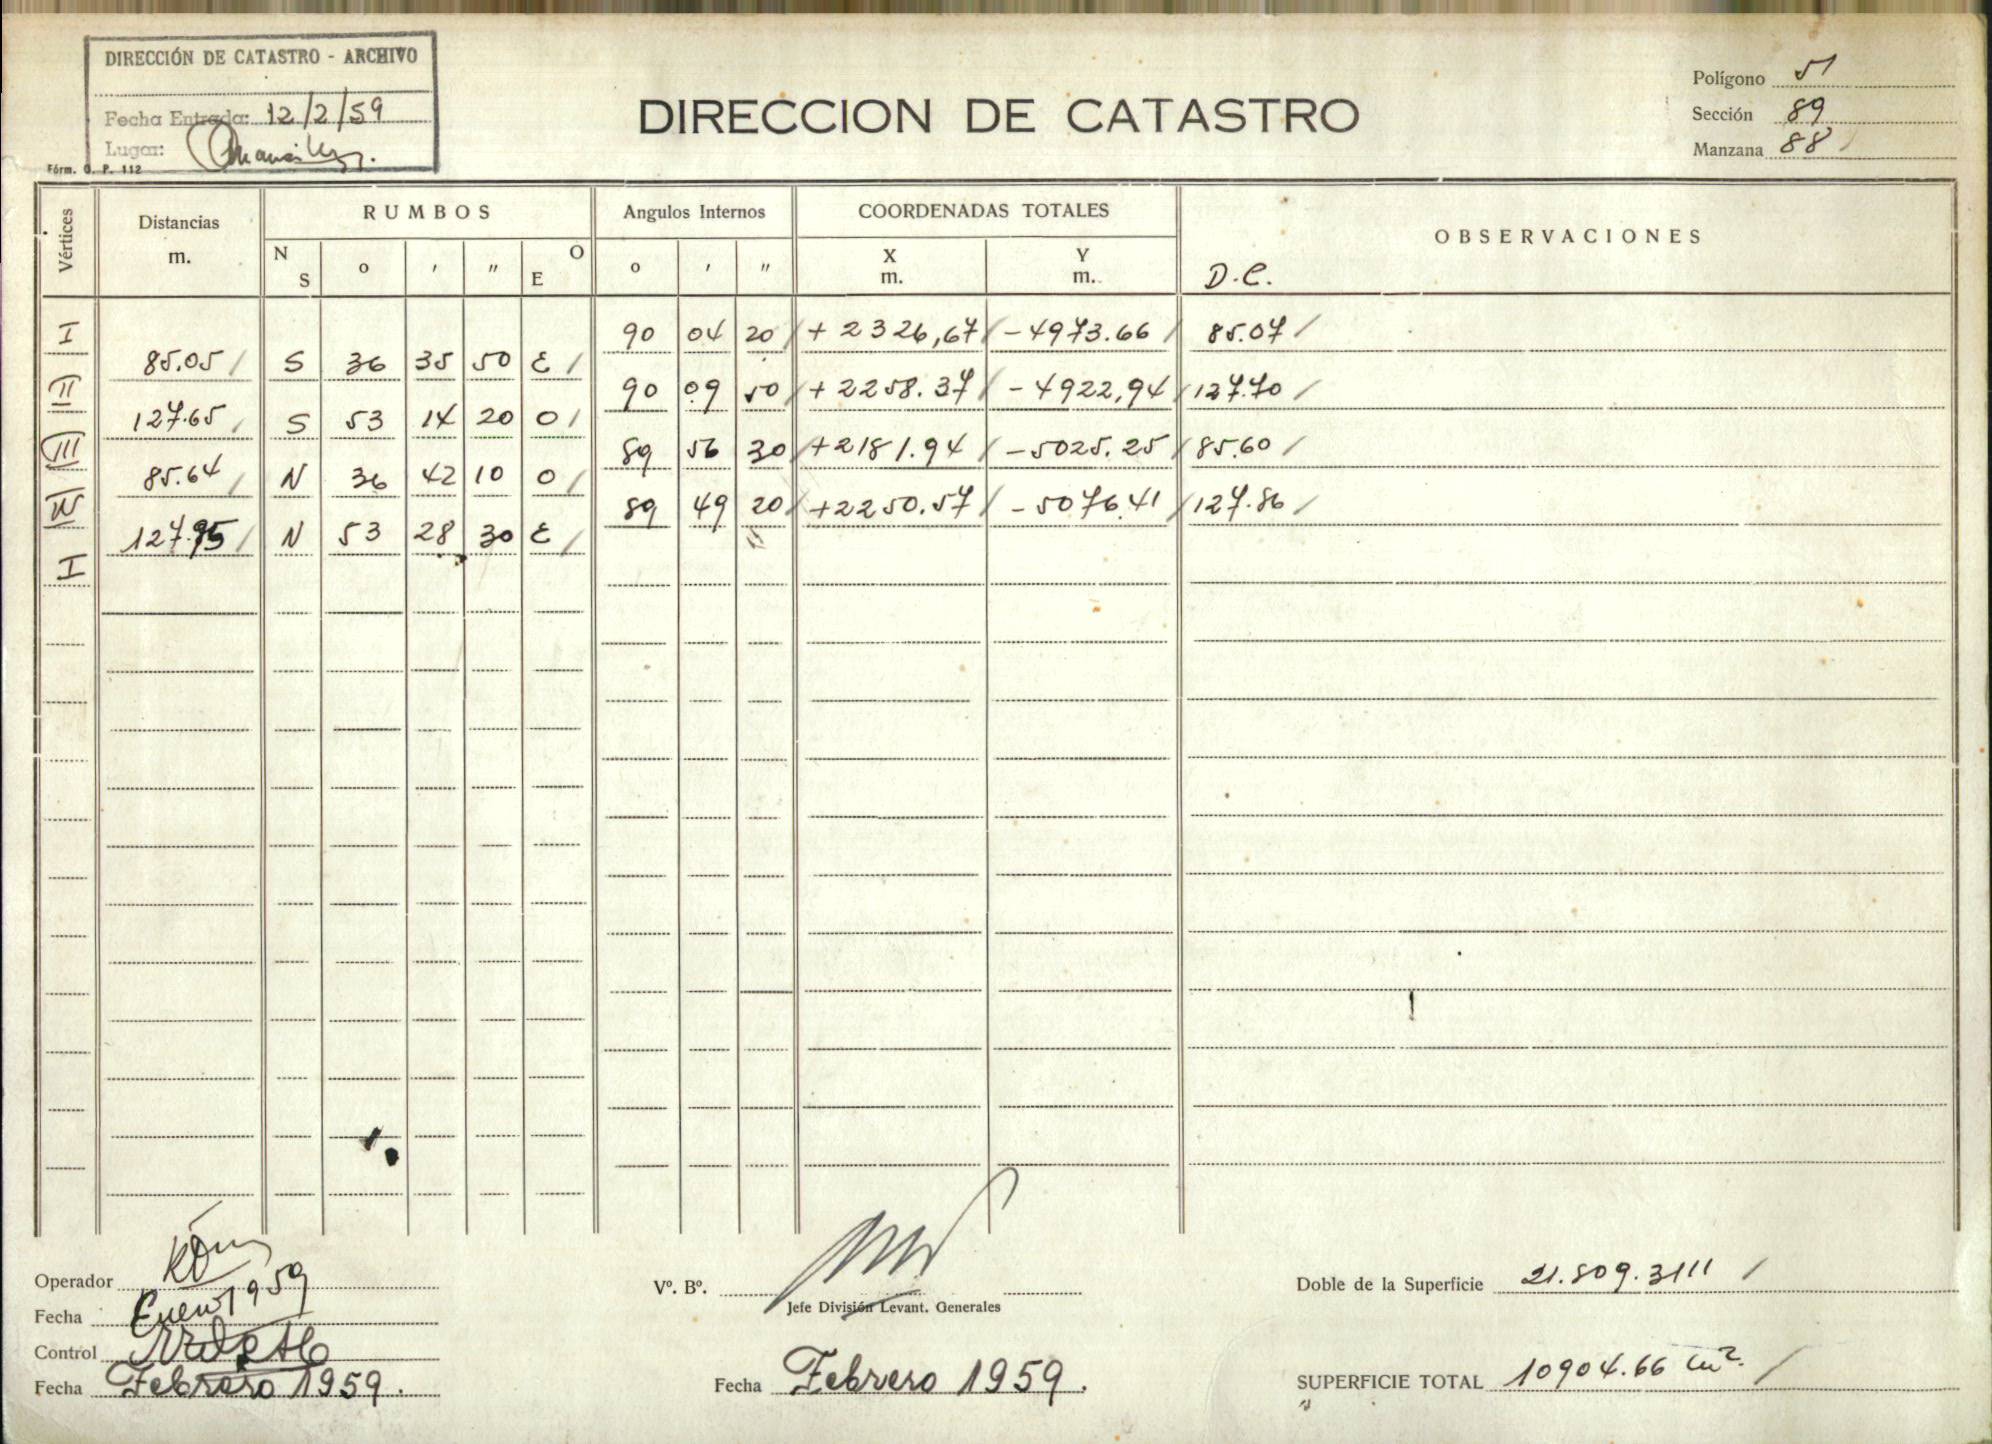 DIRECCIÓN DE CATASTRO - ARCHIVO
Fecha Entrada: 12/2/59
Lugar:
Fórm. O. P. 112
DIRECCION DE CATASTRO
Polígono 51
Sección 89
Manzana 88
Vértices Distancias m. RUMBOS Angulos Internos COORDENADAS TOTALES OBSERVACIONES
N S o ' " E O o ' " X m. Y m. D.C.
I 90 04 20 + 2326,67 - 4973.66 85.07
85.05 S 36 35 50 E
II 90 09 50 + 2258.37 - 4922,94 127.70
127.65 S 53 14 20 O
III 89 56 30 + 2181.94 - 5025.25 85.60
85.64 N 36 42 10 O
IV 89 49 20 + 2250.57 - 5076.41 127.86
127.95 N 53 28 30 E
I
Operador
Fecha Enero 1959
Control
Fecha Febrero 1959.
Vº. Bº.
Jefe División Levant. Generales
Fecha Febrero 1959.
Doble de la Superficie 21.809.3111
SUPERFICIE TOTAL 10904.66 m².